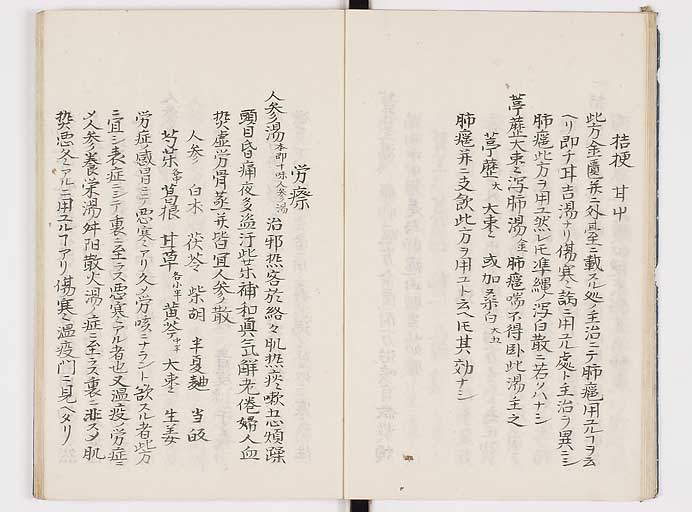 桔梗 甘中
此方金匱并ニ外臺ニ載スル処ノ主治ニテ肺癰用ユルヿヲ云
ヘリ即チ甘吉湯ナリ傷寒ニ論ニ用ユル處ト主治ヲ異ニシ
肺癰此方ヲ用ユ然レ𪜈準縄ノ瀉白散ニ若クハナシ
葶藶大棗瀉肺湯金 肺癰喘不得卧此湯主之
葶藶大 大棗 或加桑白大五
肺癰并ニ支飲此方ヲ用ユト云ヘ𪜈其効ナシ
労瘵
人参湯本即十味人参湯 治邪熱客於経絡肌熱痰嗽五心煩躁
頭目昏痛夜多盗汗此薬補和真気解老倦婦人血
熱虚労骨蒸并皆宜人参散
人参 白朮 茯苓 柴胡 半夏麹 当皈
芍薬各中 葛根 甘草各小半 黄芩中半 大棗 生姜
労症ノ感冒ニテ悪寒アリ久ク労咳ニナラント欲スル者此方
ニ宜シ表症ニシテ裏ニ至ラズ悪寒アル者也又温疫ノ労症ニ
以人参養栄湯舛阳散火湯ノ症ニ至ラズ裏ニ非スメ肌
熱悪冬アルニ用ユルヿアリ傷寒温疫門ニ見ヘタリ